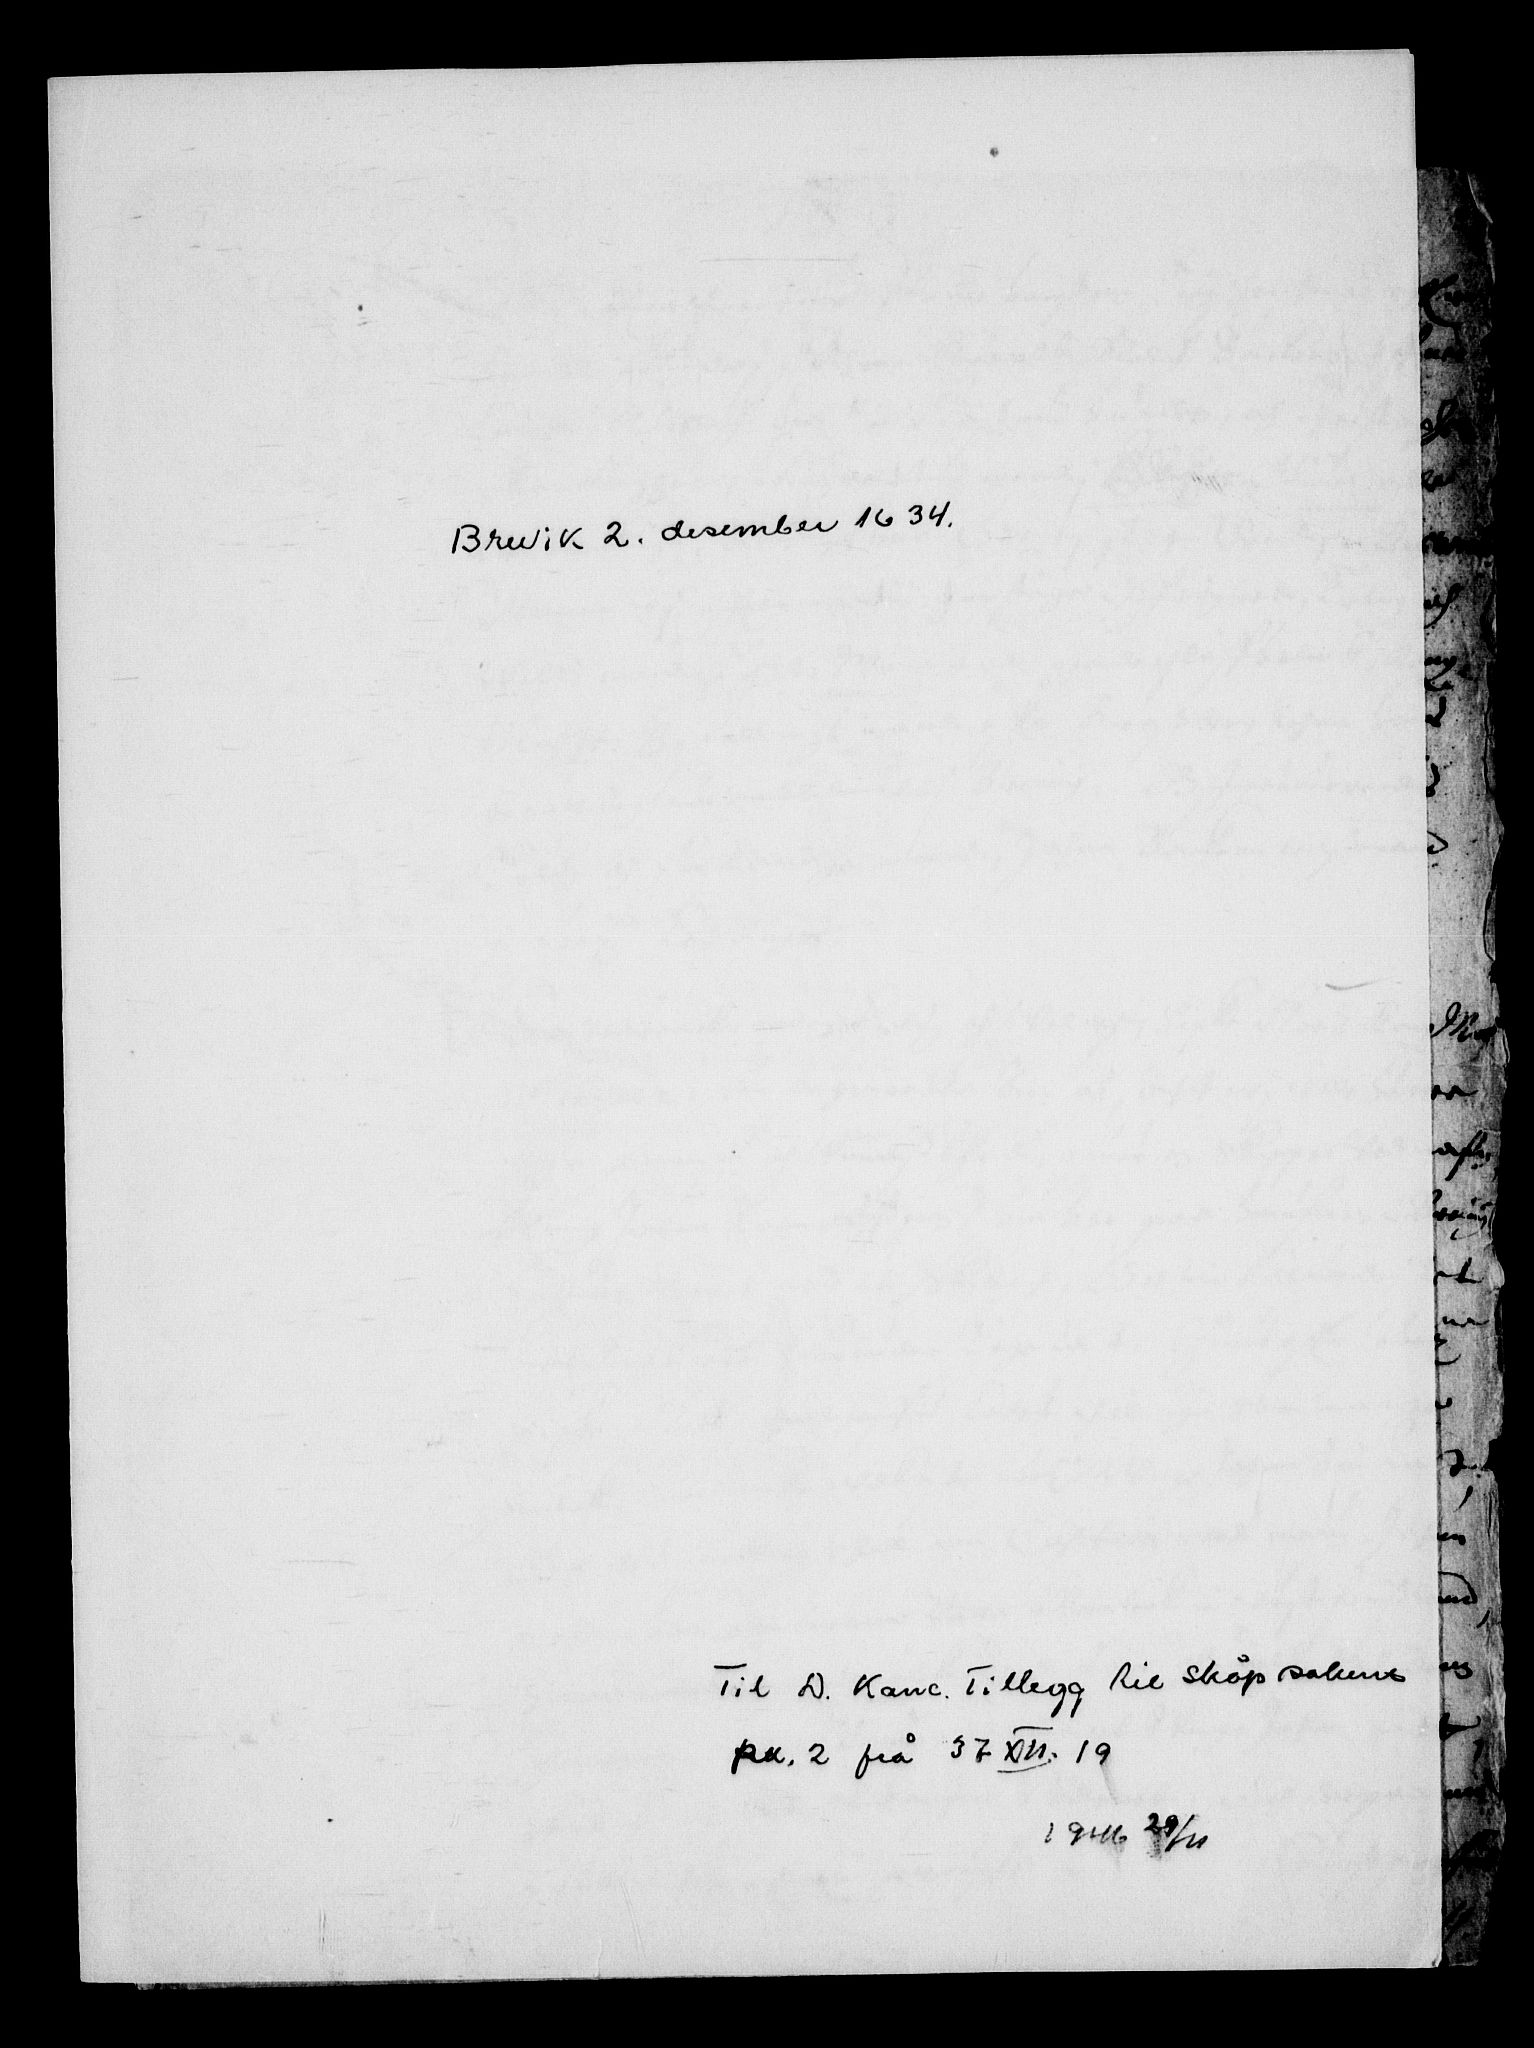 Brevik 2. desember 1634.
Til D. Kanc. Tillegg til skåpsakene
pk. 2 frå 37 XII. 19
1946 29/11